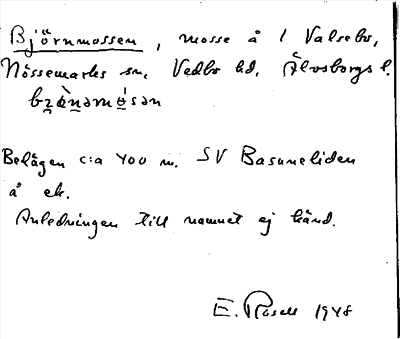 Björnmossen, mosse å 1 Valsebo,
Nössemarks sn. Vedbo hd. Älvsborgs l.
Belägen c:a 400 m. SV Basuneliden
å ek.
Anledningen till namnet ej känd.
E. Rosell 1948